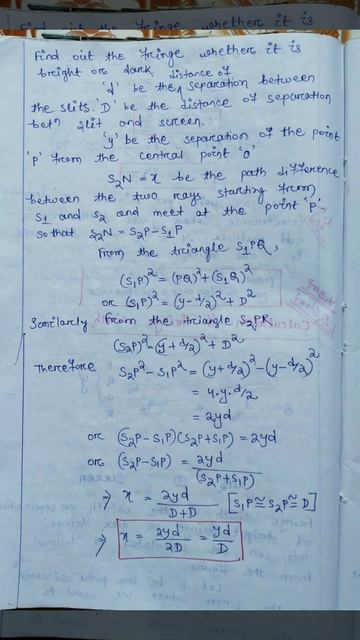 Find out the fringe whether it is
bright or dark.
'd' be the distance of separation between
the slits. 'D' be the distance of separation
betn slit and screen.
'y' be the separation of the point
'p' from the central point 'o'
S₂N = x be the path difference
between the two rays starting from
S₁ and S₂ and meet at the point 'p'
so that S₂N = S₂P - S₁P.
From the triangle S₁PQ,
(S₁P)² = (PQ)² + (S₁Q)²
or (S₁P)² = (y-d/2)² + D²
Similarly from the triangle S₂PR
(S₂P)² = (y+d/2)² + D²
Therefore S₂P² - S₁P² = (y+d/2)² - (y-d/2)²
= 4.y.d/2
= 2yd
or (S₂P - S₁P)(S₂P + S₁P) = 2yd
or (S₂P - S₁P) = 2yd/(S₂P + S₁P)
⇒ x = 2yd/D+D [S₁P ≅ S₂P ≅ D]
⇒ x = 2yd/2D = yd/D